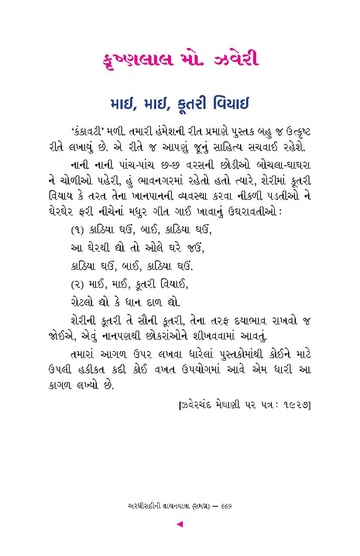 કૃષ્ણલાલ મો. ઝવેરી
માઈ, માઈ, કૂતરી વિયાઈ
‘કંકાવટી’ મળી. તમારી હંમેશની રીત પ્રમાણે પુસ્તક બહુ જ ઉત્કૃષ્ટ
રીતે લખાયું છે. એ રીતે જ આપણું જૂનું સાહિત્ય સચવાઈ રહેશે.
નાની નાની પાંચ-પાંચ છ-છ વરસની છોડીઓ બોચલા-ઘાઘરા
ને ચોળીઓ પહેરી, હું ભાવનગરમાં રહેતો હતો ત્યારે, શેરીમાં કૂતરી
વિયાય કે તરત તેના ખાનપાનની વ્યવસ્થા કરવા નીકળી પડતીઓ ને
ઘેરઘેર ફરી નીચેનાં મધુર ગીત ગાઈ ખાવાનું ઉઘરાવતીઓ :
(૧) કાઠિયા ઘઉં, બાઈ, કાઠિયા ઘઉં,
આ ઘેરથી દ્યો તો ઓલે ઘરે જઉં,
કાઠિયા ઘઉં, બાઈ, કાઠિયા ઘઉં.
(૨) માઈ, માઈ, કૂતરી વિયાઈ,
રોટલો દ્યો કે ધાન દાળ દ્યો.
શેરીની કૂતરી તે સૌની કૂતરી, તેના તરફ દયાભાવ રાખવો જ
જોઈએ, એવું નાનપણથી છોકરાંઓને શીખવવામાં આવતું.
તમારાં આગળ ઉપર લખવા ધારેલાં પુસ્તકોમાંથી કોઈને માટે
ઉપલી હકીકત કદી કોઈ વખત ઉપયોગમાં આવે એમ ધારી આ
કાગળ લખ્યો છે.
[ઝવેરચંદ મેઘાણી પર પત્ર : ૧૯૨૭]
અરધી સદીની વાચનયાત્રા (સમગ્ર) — 669